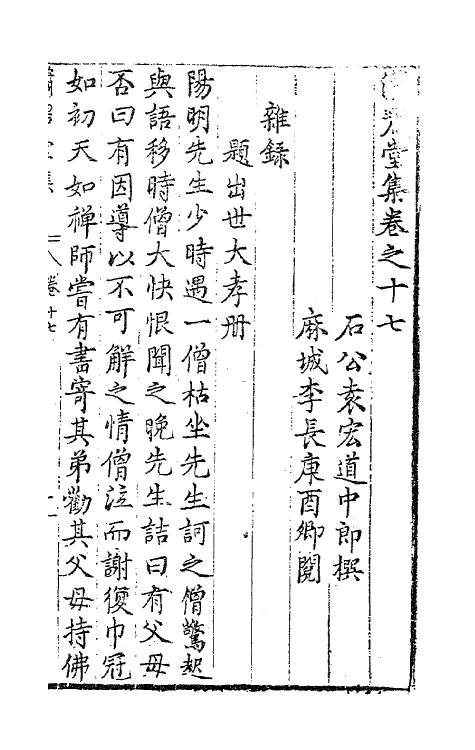 堂集卷之十七
石公袁宏道中郎撰
麻城李長庚酉卿閱
雜錄
題出世大孝册
陽明先生少時遇一僧枯坐先生訶之僧驚起
與語移時僧大快恨聞之晚先生詰曰有父母
否曰有因導以不可解之情僧泣而謝復巾冠
如初天如禅師嘗有書寄其弟勸其父母持佛
卷十七